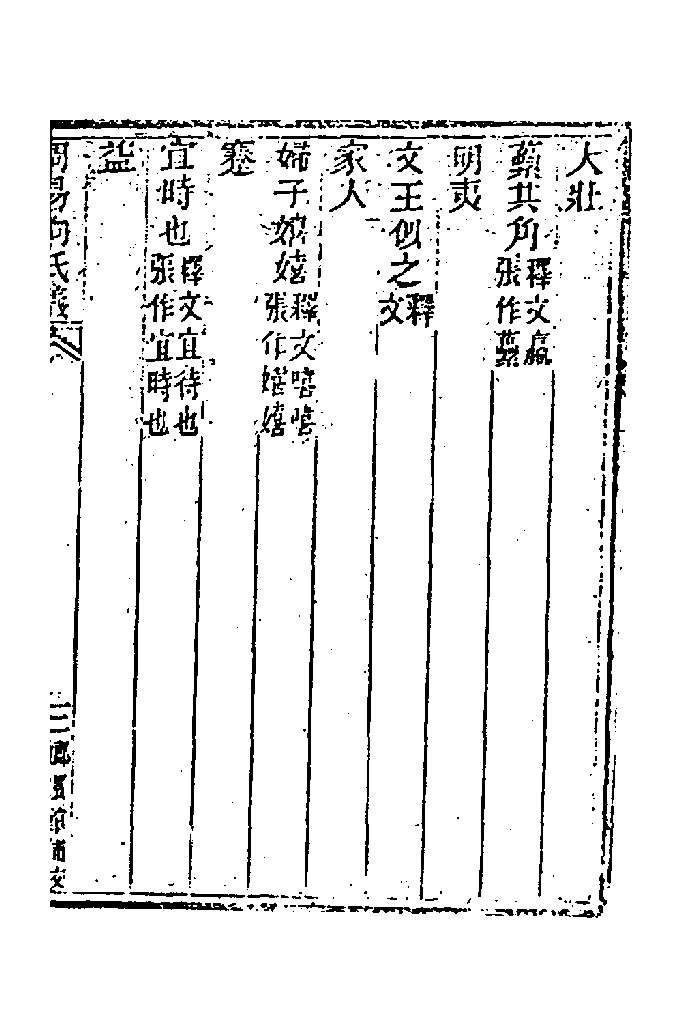 大壯
虆其角釋文羸張作虆
明夷
文王似之釋文
家人
婦子嬉嬉釋文嘻嘻張作嬉嬉
蹇
宜時也釋文宜待也張作宜時也
益
周易向氏義 三 嫏嬛館補校